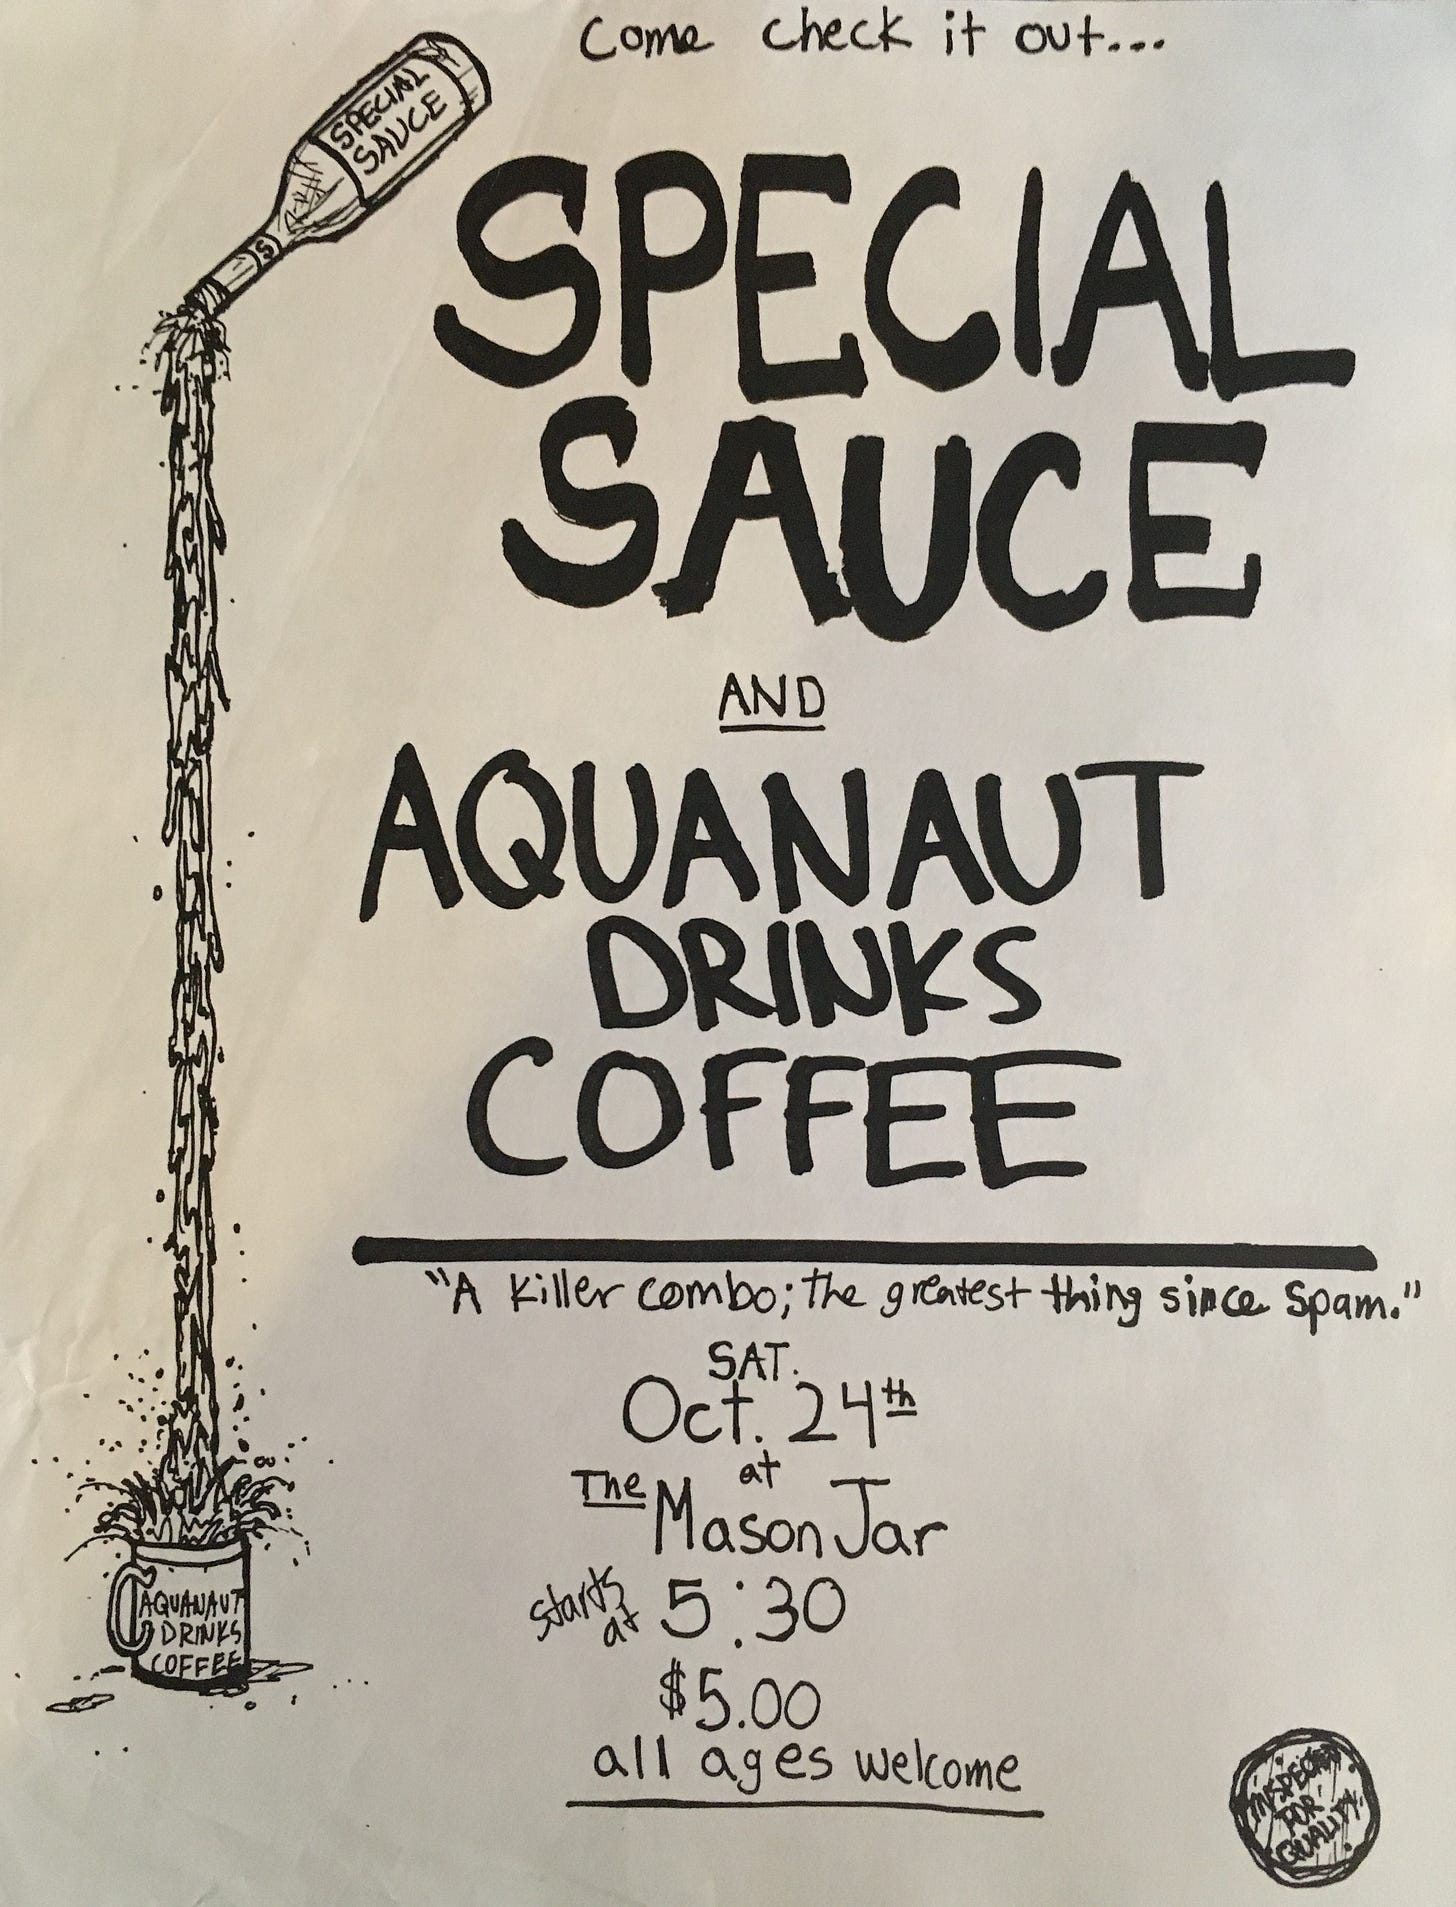 Come check it out...
SPECIAL
SAUCE
S
SPECIAL
SAUCE
AND
AQUANAUT
DRINKS
COFFEE
"A killer combo; the greatest thing since Spam."
SAT.
Oct. 24th
at
The Mason Jar
starts at 5:30
$5.00
all ages welcome
AQUANAUT
DRINKS
COFFEE
INSPECTED
FOR
QUALITY